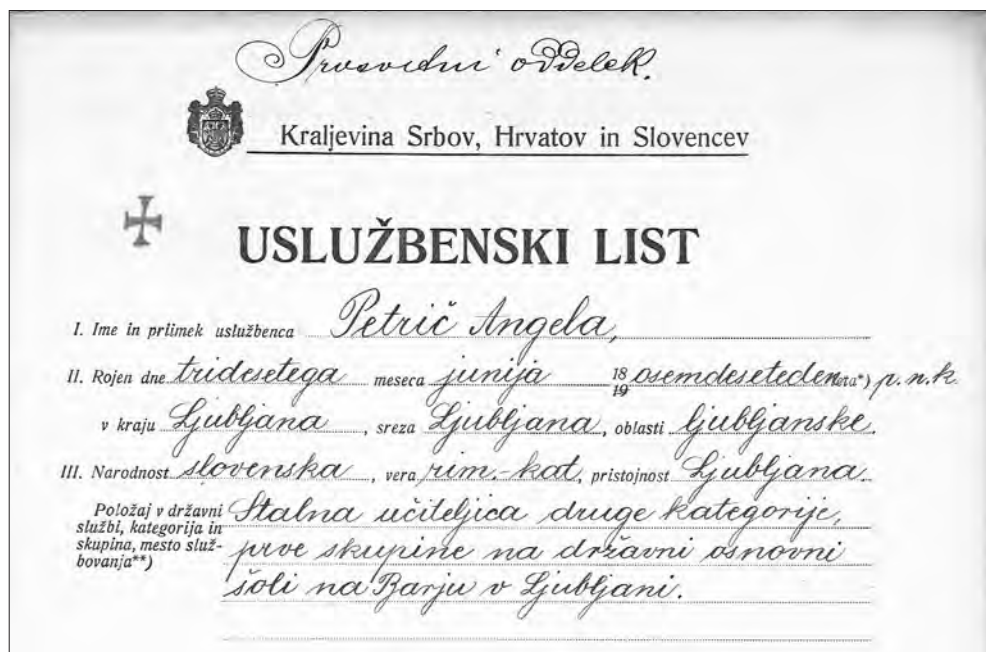 Prosvetni oddelek.
Kraljevina Srbov, Hrvatov in Slovencev
USLUŽBENSKI LIST
I. Ime in priimek uslužbenca Petrič Angela,
II. Rojen dne tridesetega meseca junija 18 19 osemdeseteden p. n. k.
v kraju Ljubljana, sreza Ljubljana, oblasti ljubljanske.
III. Narodnost slovenska, vera rim.-kat, pristojnost Ljubljana.
Položaj v državni
službi, kategorija in
skupina, mesto služ-
bovanja**)
Stalna učiteljica druge kategorije,
prve skupine na državni osnovni
šoli na Barju v Ljubljani.